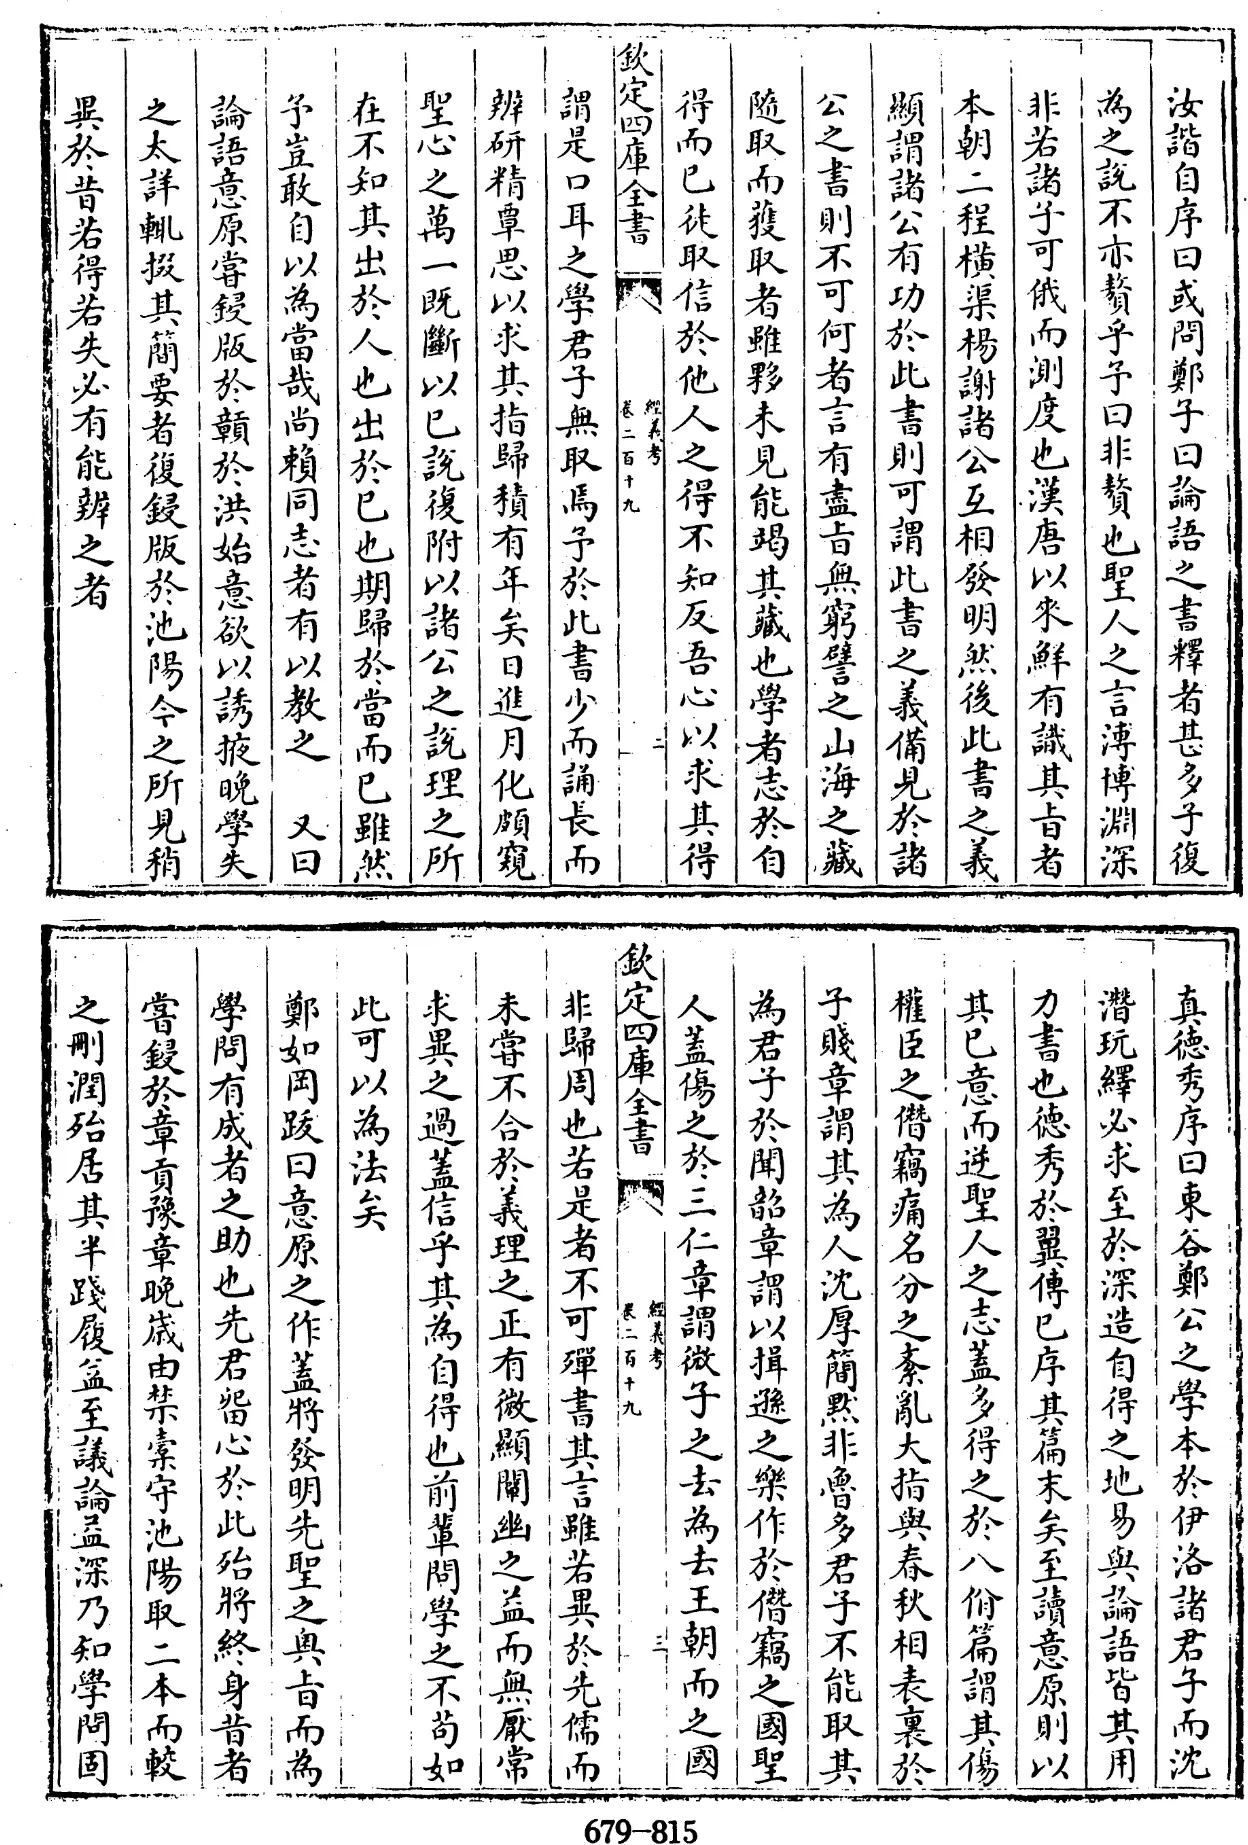 汝諧自序曰或問鄭子曰論語之書釋者甚多子復
為之説不亦贅乎予曰非贅也聖人之言溥博淵深
非若諸子可俄而測度也漢唐以來鮮有識其旨者
本朝二程横渠楊謝諸公互相發明然後此書之義
顯謂諸公有功於此書則可謂此書之義備見於諸
公之書則不可何者言有盡旨無窮譬之山海之藏
隨取而獲取者雖夥未見能竭其藏也學者志於自
得而已徒取信於他人之得不知反吾心以求其得
欽定四庫全書
經義考
卷二百十九
二
謂是口耳之學君子無取焉予於此書少而誦長而
辨研精覃思以求其指歸積有年矣日進月化頗窺
聖心之萬一既斷以已説復附以諸公之説理之所
在不知其出於人也出於已也期歸於當而已雖然
予豈敢自以為當哉尚賴同志者有以教之　又曰
論語意原嘗鋟版於贛於洪始意欲以誘掖晚學失
之太詳輒掇其簡要者復鋟版於池陽今之所見稍
異於昔若得若失必有能辨之者
真徳秀序曰東谷鄭公之學本於伊洛諸君子而沈
潛玩繹必求至於深造自得之地易與論語皆其用
力書也徳秀於翼傳已序其篇末矣至讀意原則以
其已意而逆聖人之志蓋多得之於八佾篇謂其傷
權臣之僭竊痛名分之紊亂大指與春秋相表裏於
子賤章謂其為人沈厚簡黙非魯多君子不能取其
為君子於聞韶章謂以揖遜之樂作於僭竊之國聖
人蓋傷之於三仁章謂微子之去為去王朝而之國
欽定四庫全書
經義考
卷二百十九
三
非歸周也若是者不可殫書其言雖若異於先儒而
未嘗不合於義理之正有微顯闡幽之益而無厭常
求異之過蓋信乎其為自得也前輩問學之不苟如
此可以為法矣
鄭如岡跋曰意原之作蓋將發明先聖之奥旨而為
學問有成者之助也先君留心於此殆將終身昔者
嘗鋟於章貢豫章晚嵗由禁橐守池陽取二本而較
之刪潤殆居其半踐履益至議論益深乃知學問固
679-815